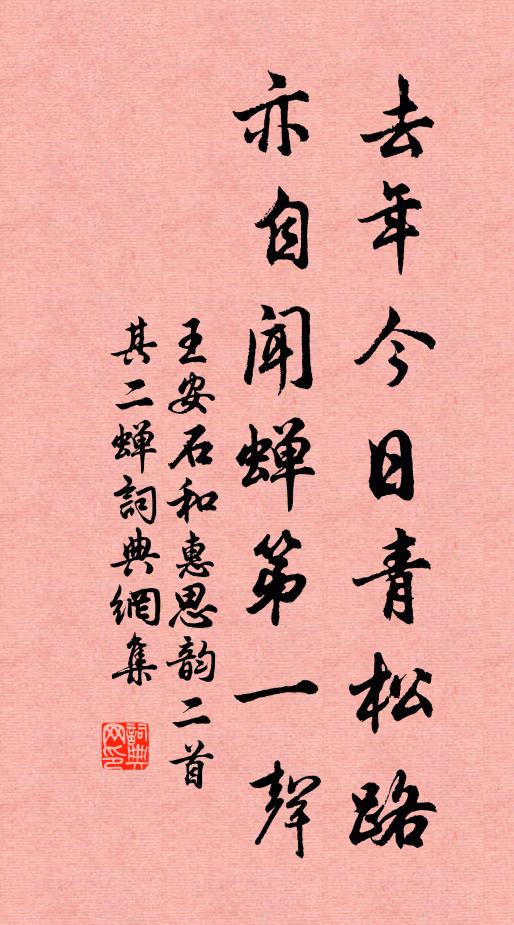 去年今日青松路
亦自闻蝉第一聲
王安石和惠思韵二首
其二蝉詞典網集
詞典网印